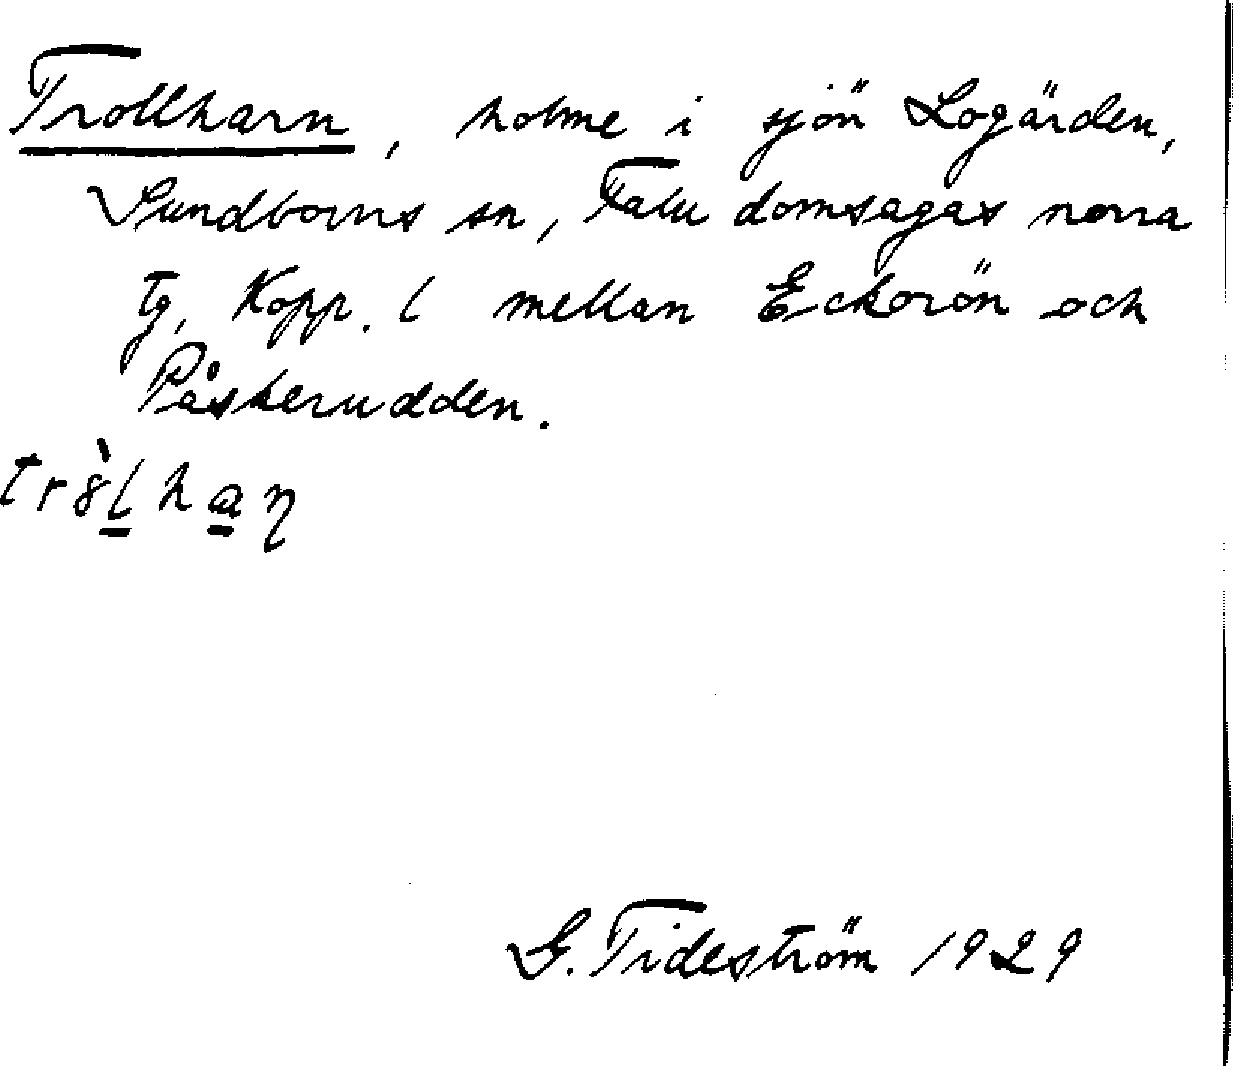 Trollharn, holme i sjön Logärden,
Sundborns sn, Falu domsagas norra
tg, Kopp. l mellan Eckorön och
Påskerudden.
G. Tideström 1929